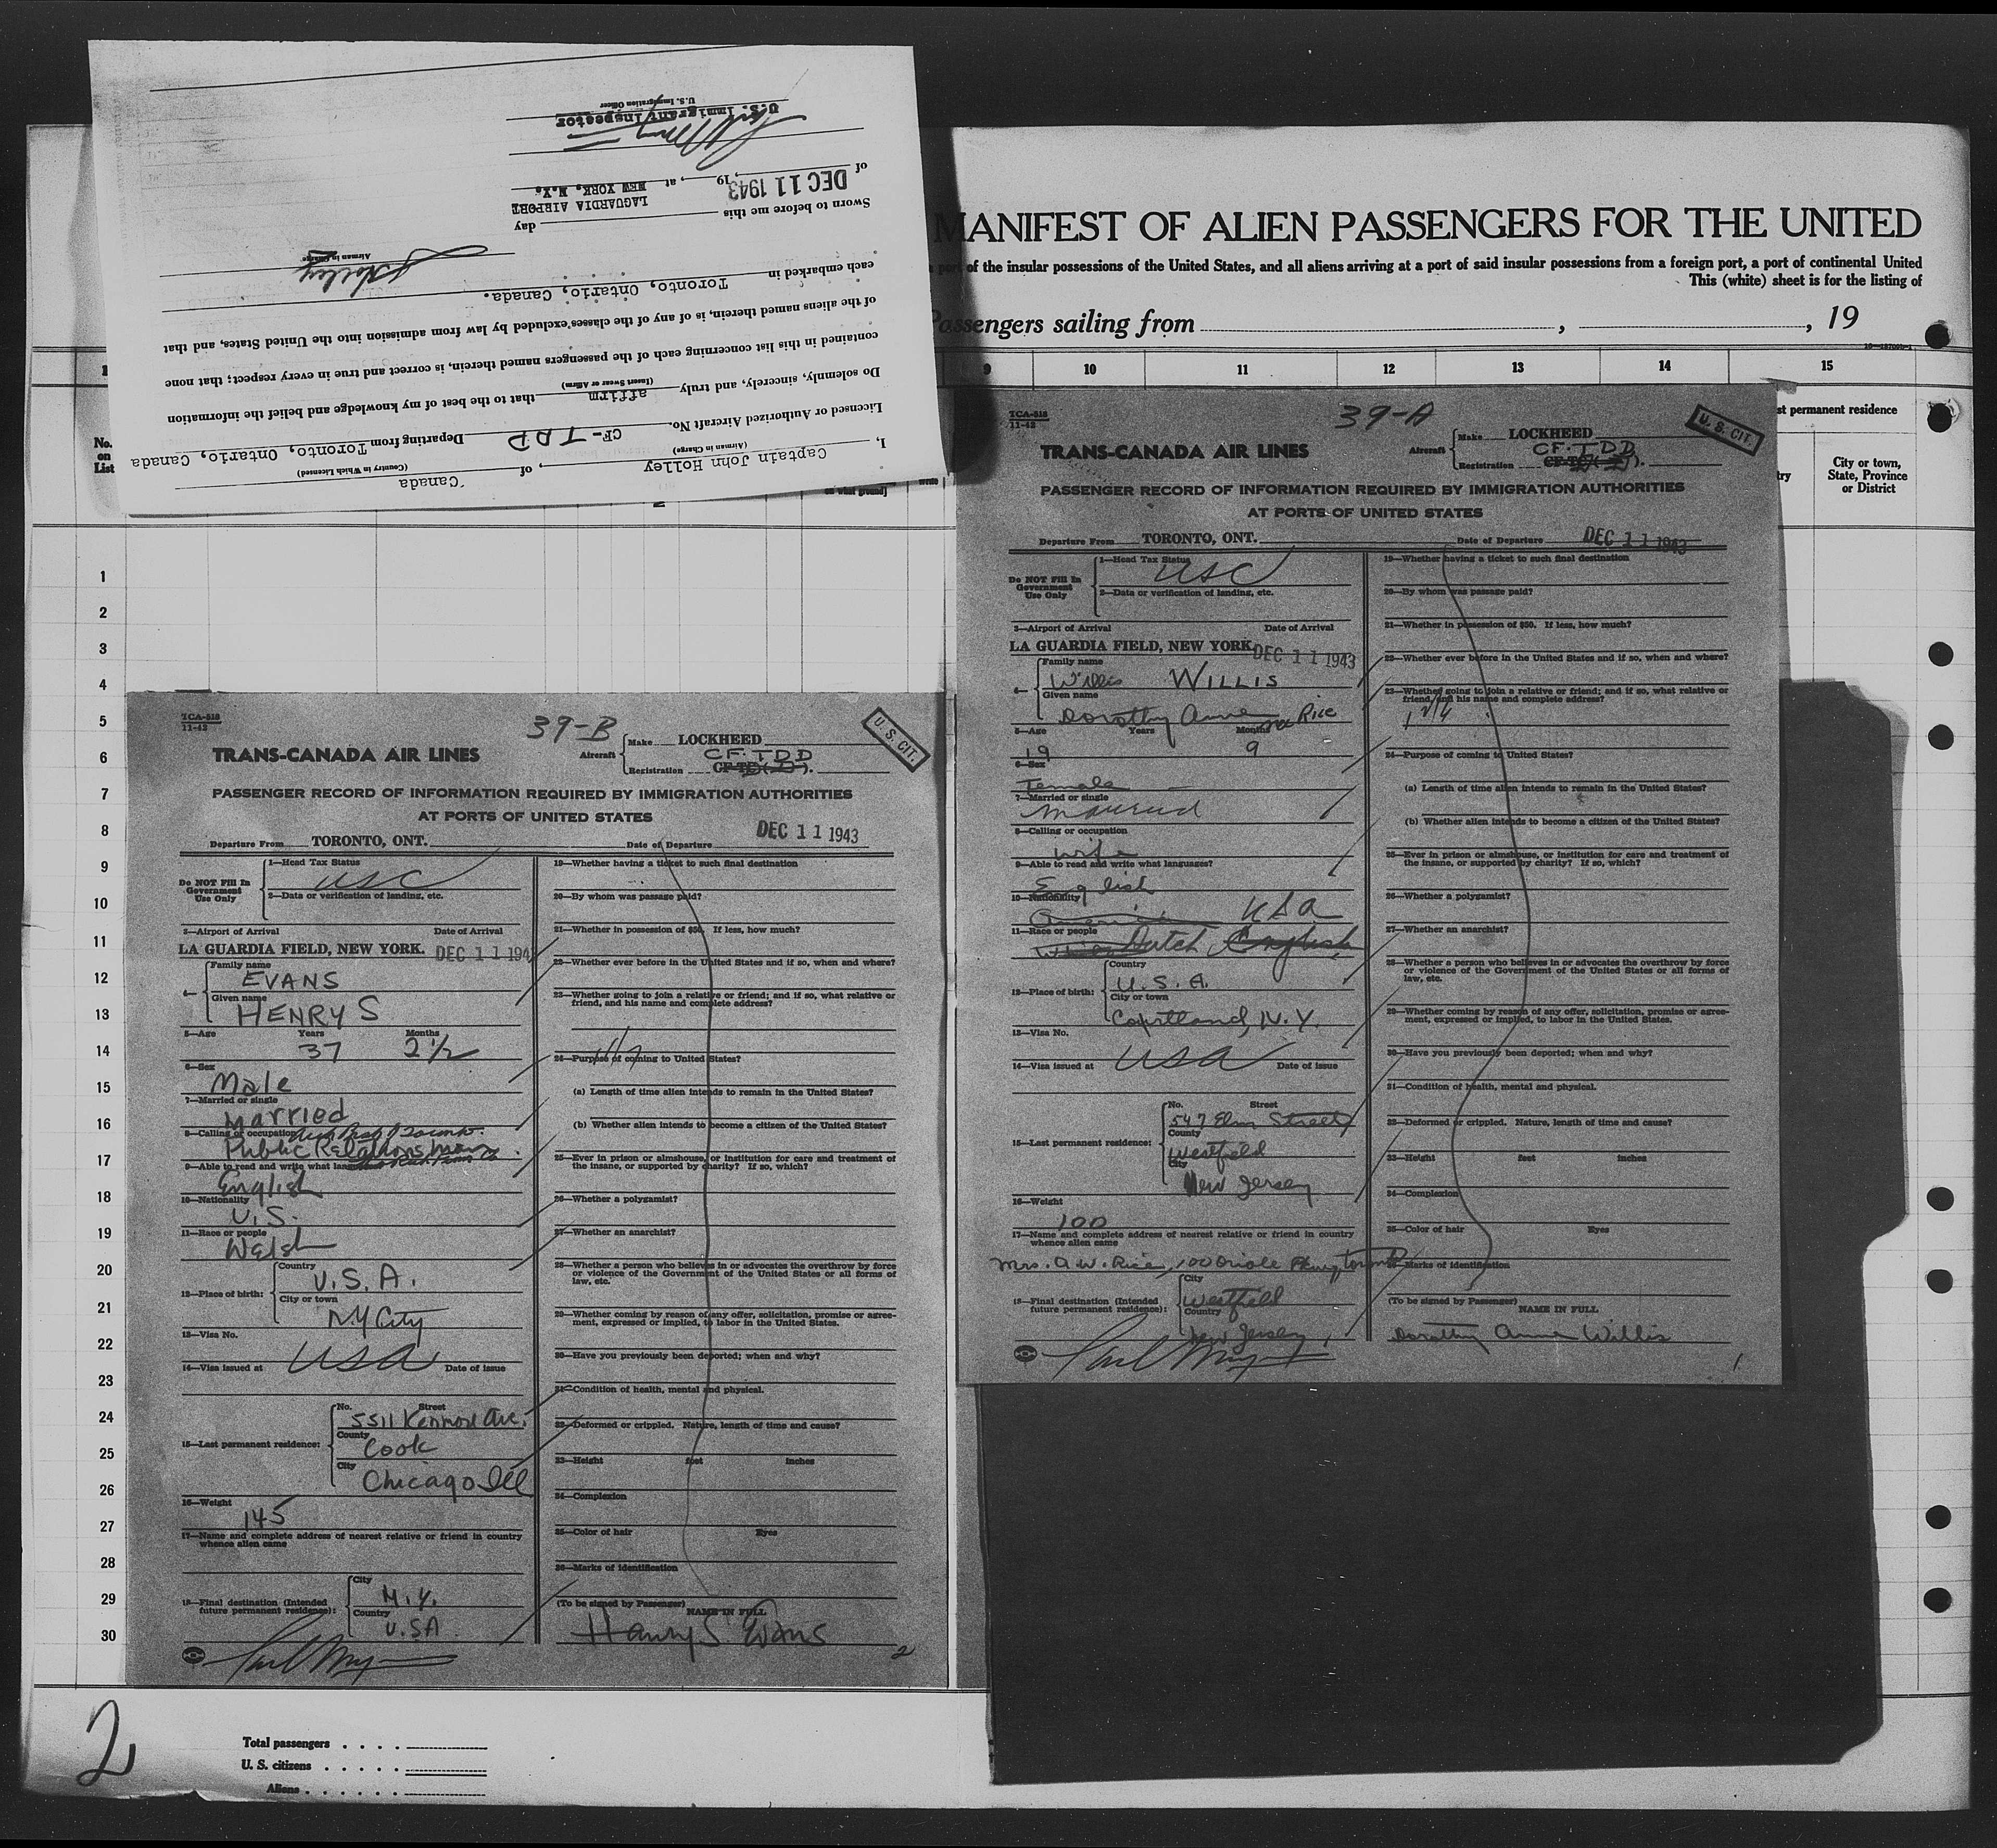 I, Captain John Holley, of Canada
(Airman in Charge) (Country in Which Licensed)
Licensed or Authorized Aircraft No. CF-TDD Departing from Toronto, Ontario, Canada
Do solemnly, sincerely, and truly affirm that to the best of my knowledge and belief the information
(Insert Swear or Affirm)
contained in this list concerning each of the passengers named therein, is correct and true in every respect; that none
of the aliens named therein, is of any of the classes excluded by law from admission into the United States, and that
each embarked in Toronto, Ontario, Canada.
J Holley
Airman in Charge
Sworn to before me this day
of DEC 11 1943, 19, at LAGUARDIA AIRPORT
NEW YORK, N.Y.
U.S. Immigrant Inspector
U.S. Immigration Officer
MANIFEST OF ALIEN PASSENGERS FOR THE UNITED
port of the insular possessions of the United States, and all aliens arriving at a port of said insular possessions from a foreign port, a port of continental United
This (white) sheet is for the listing of
Passengers sailing from , , 19
1 9 10 11 12 13 14 15
st permanent residence
No.
on
List
on what ground]
write
try
City or town,
State, Province
or District
2
1
2
3
4
5
6
7
8
9
10
11
12
13
14
15
16
17
18
19
20
21
22
23
24
25
26
27
28
29
30
TCA-518
11-42
39-B
U. S. CIT.
TRANS-CANADA AIR LINES
Aircraft Make LOCKHEED
Registration CF-TDD
PASSENGER RECORD OF INFORMATION REQUIRED BY IMMIGRATION AUTHORITIES
AT PORTS OF UNITED STATES
Departure From TORONTO, ONT. Date of Departure DEC 11 1943
Do NOT Fill In
Government
Use Only
1—Head Tax Status
USC
2—Data or verification of landing, etc.
3—Airport of Arrival Date of Arrival
LA GUARDIA FIELD, NEW YORK. DEC 11 194
4— Family name
EVANS
Given name
HENRY S
5—Age Years Months
37 2½
6—Sex
Male
7—Married or single
Married
8—Calling or occupation
Public Relations Man
9—Able to read and write what languages
English
10—Nationality
U.S.
11—Race or people
Welsh
12—Place of birth: Country
U.S.A.
City or town
N.Y City
13—Visa No.
USA
14—Visa issued at Date of issue
15—Last permanent residence: No. Street
5511 Kenmore Ave.
County
Cook
City
Chicago Ill
16—Weight
145
17—Name and complete address of nearest relative or friend in country
whence alien came
18—Final destination (Intended
future permanent residence): City
N.Y.
Country
U.SA.
19—Whether having a ticket to such final destination
20—By whom was passage paid?
21—Whether in possession of $50. If less, how much?
22—Whether ever before in the United States and if so, when and where?
23—Whether going to join a relative or friend; and if so, what relative or
friend, and his name and complete address?
24—Purpose of coming to United States?
(a) Length of time alien intends to remain in the United States?
(b) Whether alien intends to become a citizen of the United States?
25—Ever in prison or almshouse, or institution for care and treatment of
the insane, or supported by charity? If so, which?
26—Whether a polygamist?
27—Whether an anarchist?
28—Whether a person who believes in or advocates the overthrow by force
or violence of the Government of the United States or all forms of
law, etc.
29—Whether coming by reason of any offer, solicitation, promise or agree-
ment, expressed or implied, to labor in the United States.
30—Have you previously been deported; when and why?
31—Condition of health, mental and physical.
32—Deformed or crippled. Nature, length of time and cause?
33—Height feet inches
34—Complexion
35—Color of hair Eyes
36—Marks of identification
(To be signed by Passenger) NAME IN FULL
Henry S Evans
2
TCA-518
11-42
39-A
U. S. CIT.
TRANS-CANADA AIR LINES
Aircraft Make LOCKHEED
Registration CF-TDD
PASSENGER RECORD OF INFORMATION REQUIRED BY IMMIGRATION AUTHORITIES
AT PORTS OF UNITED STATES
Departure From TORONTO, ONT. Date of Departure DEC 11 1943
Do NOT Fill In
Government
Use Only
1—Head Tax Status
USC
2—Data or verification of landing, etc.
3—Airport of Arrival Date of Arrival
LA GUARDIA FIELD, NEW YORK. DEC 11 1943
4— Family name
Willis WILLIS
Given name
Dorothy Anne née Rice
5—Age Years Months
19 9
6—Sex
Female
7—Married or single
Married
8—Calling or occupation
wife
9—Able to read and write what languages?
English
10—Nationality
USA
11—Race or people
Dutch English
12—Place of birth: Country
U.S.A.
City or town
Cortland, N.Y.
13—Visa No.
USA
14—Visa issued at Date of issue
15—Last permanent residence: No. Street
547 Elm Street
County
Westfield
City
New Jersey
16—Weight
100
17—Name and complete address of nearest relative or friend in country
whence alien came
Mrs. A.W. Rice, 100 Oriole Pkwy, Toronto
18—Final destination (Intended
future permanent residence): City
Westfield
Country
New Jersey
19—Whether having a ticket to such final destination
20—By whom was passage paid?
21—Whether in possession of $50. If less, how much?
22—Whether ever before in the United States and if so, when and where?
23—Whether going to join a relative or friend; and if so, what relative or
friend, and his name and complete address?
24—Purpose of coming to United States?
(a) Length of time alien intends to remain in the United States?
(b) Whether alien intends to become a citizen of the United States?
25—Ever in prison or almshouse, or institution for care and treatment of
the insane, or supported by charity? If so, which?
26—Whether a polygamist?
27—Whether an anarchist?
28—Whether a person who believes in or advocates the overthrow by force
or violence of the Government of the United States or all forms of
law, etc.
29—Whether coming by reason of any offer, solicitation, promise or agree-
ment, expressed or implied, to labor in the United States.
30—Have you previously been deported; when and why?
31—Condition of health, mental and physical.
32—Deformed or crippled. Nature, length of time and cause?
33—Height feet inches
34—Complexion
35—Color of hair Eyes
36—Marks of identification
(To be signed by Passenger) NAME IN FULL
Dorothy Anne Willis
1
2
Total passengers
U. S. citizens
Aliens